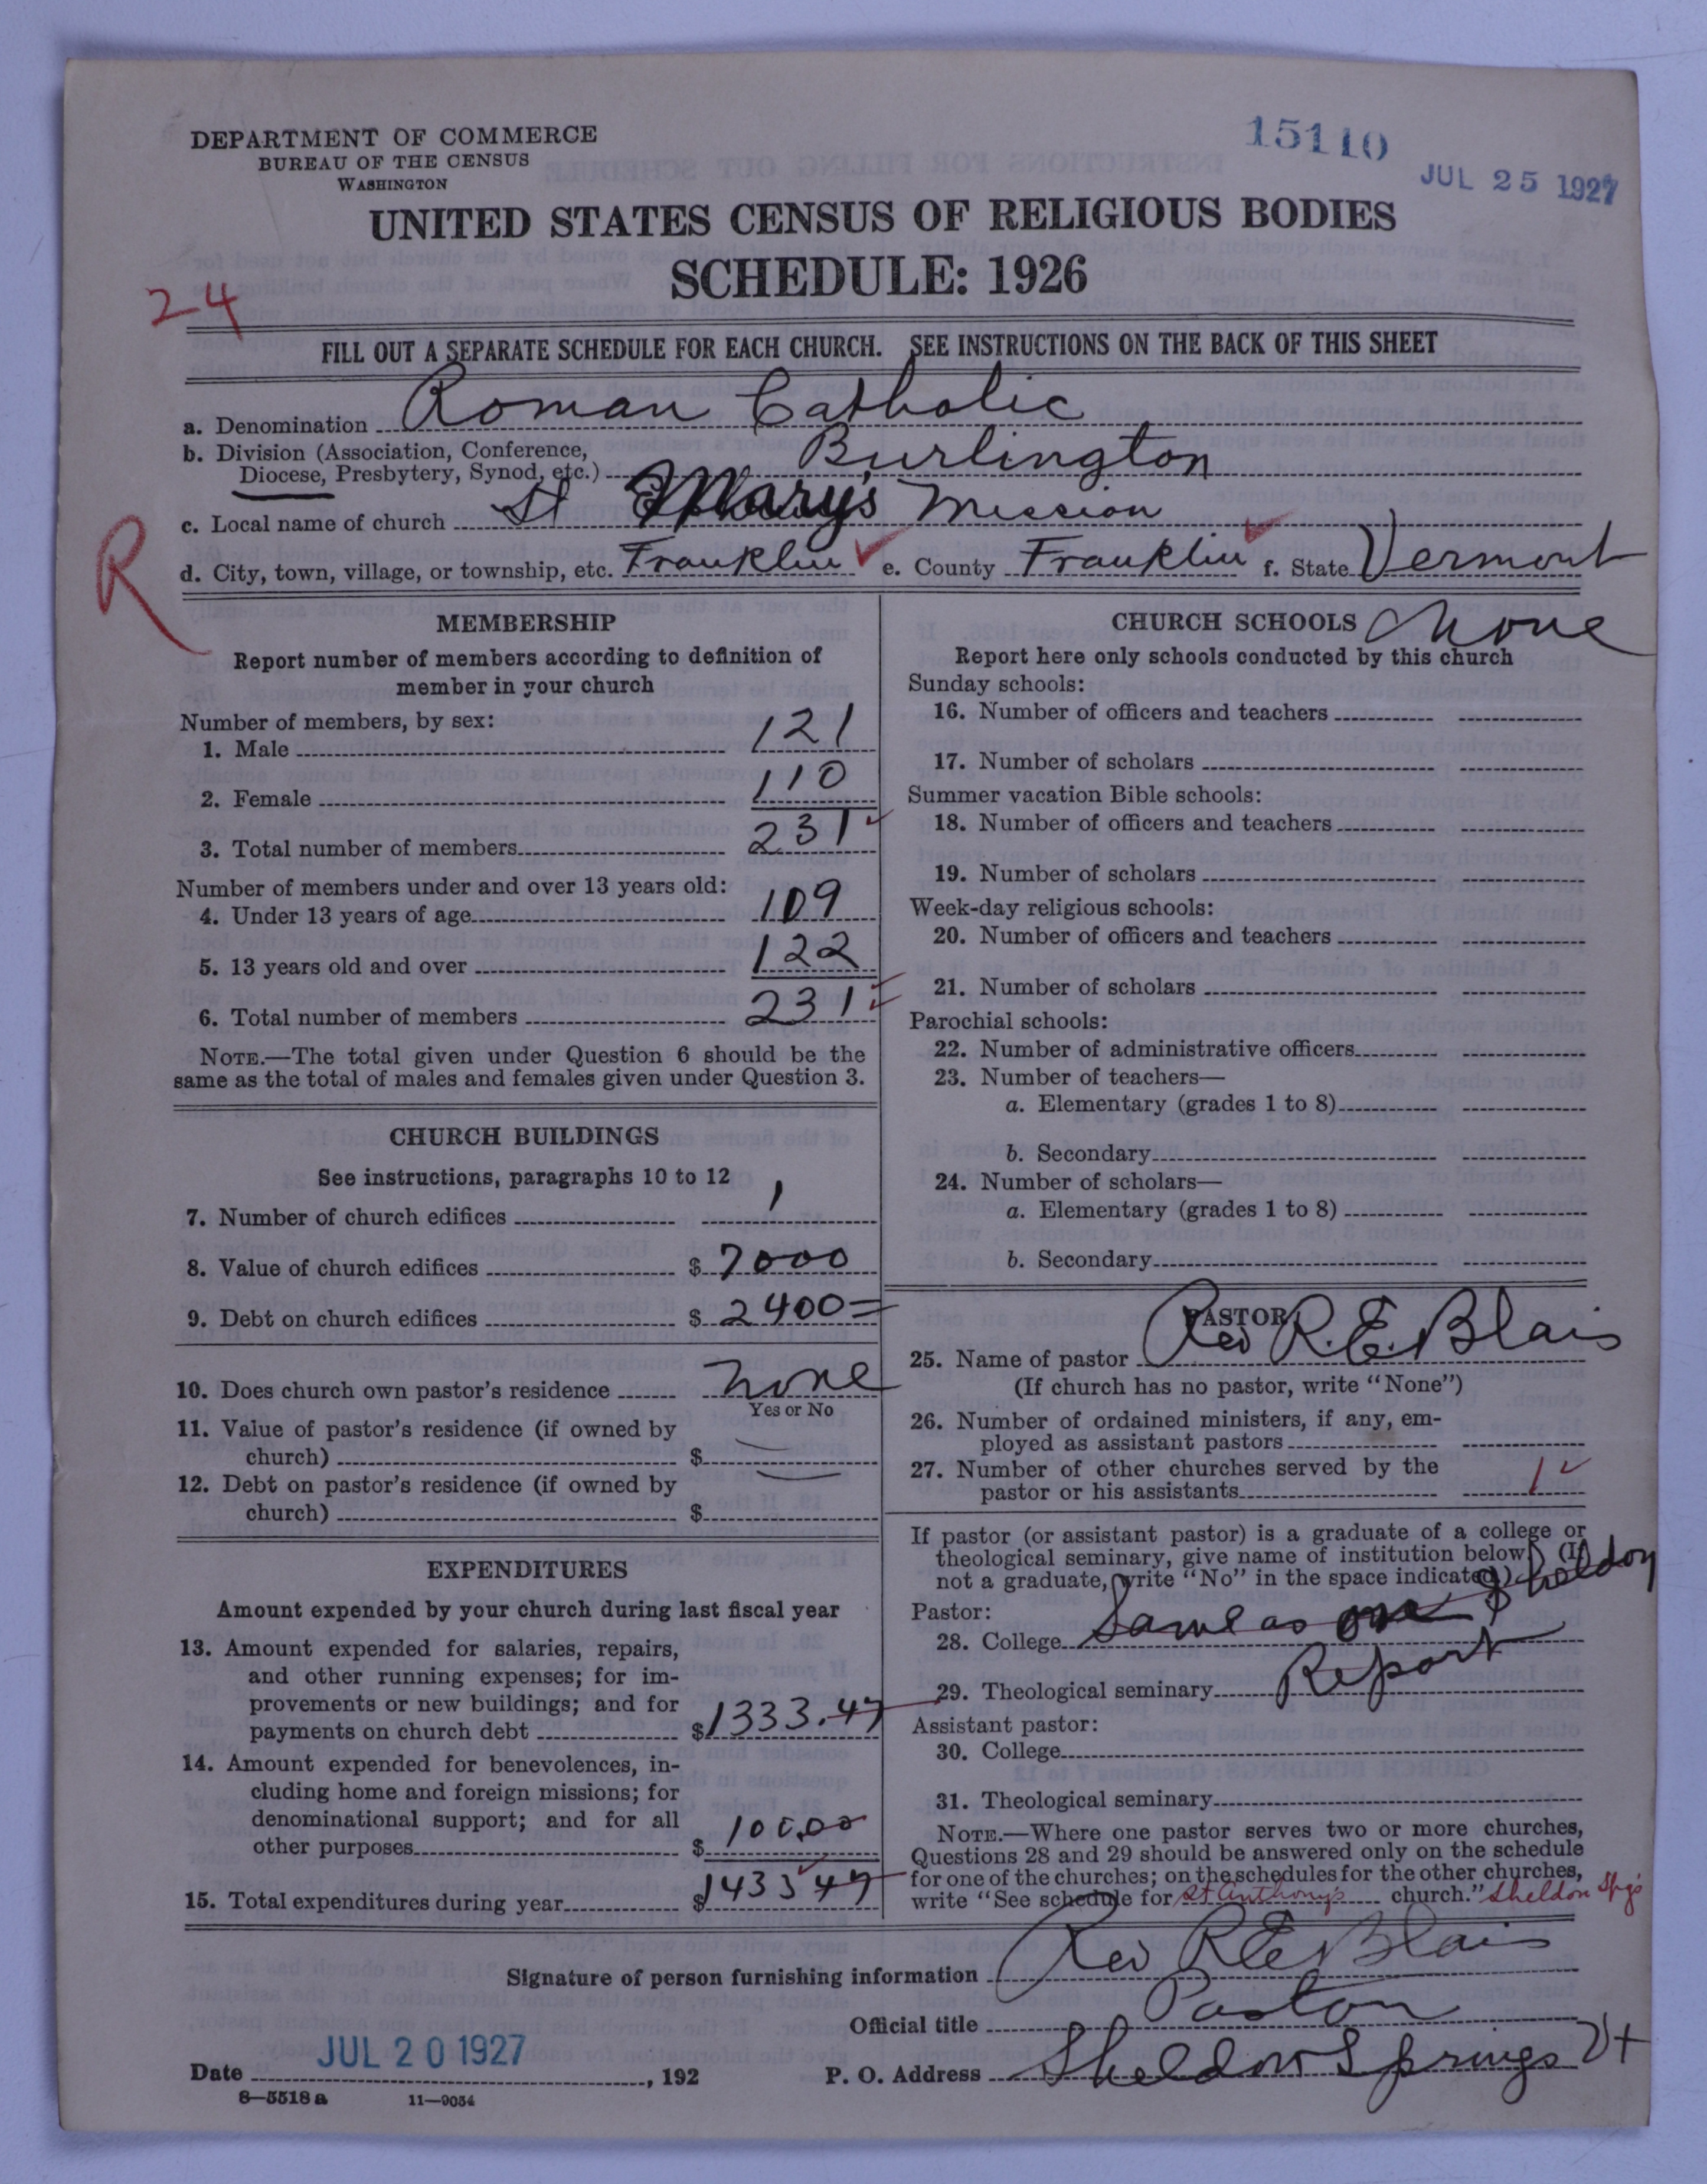 DEPARTMENT OF COMMERCE
BUREAU OF THE CENSUS
WASHINGTON
15110
JUL 25 1927
UNITED STATES CENSUS OF RELIGIOUS BODIES
SCHEDULE: 1926
24
FILL OUT A SEPARATE SCHEDULE FOR EACH CHURCH. SEE INSTRUCTIONS ON THE BACK OF THIS SHEET
a. Denomination Roman Catholic
b. Division (Association, Conference,
Diocese, Presbytery, Synod, etc.) Burlington
c. Local name of church St Mary's Mission
R
d. City, town, village, or township, etc. Franklin e. County Franklin f. State Vermont
MEMBERSHIP
Report number of members according to definition of
member in your church
Number of members, by sex:
1. Male 121
2. Female 110
3. Total number of members 231
Number of members under and over 13 years old:
4. Under 13 years of age 109
5. 13 years old and over 122
6. Total number of members 231
NOTE.—The total given under Question 6 should be the
same as the total of males and females given under Question 3.
CHURCH BUILDINGS
See instructions, paragraphs 10 to 12
7. Number of church edifices 1
8. Value of church edifices $ 7000
9. Debt on church edifices $ 2400=
10. Does church own pastor's residence none
Yes or No
11. Value of pastor's residence (if owned by
church) $ —
12. Debt on pastor's residence (if owned by
church) $ —
EXPENDITURES
Amount expended by your church during last fiscal year
13. Amount expended for salaries, repairs,
and other running expenses; for im-
provements or new buildings; and for
payments on church debt $1333.47
14. Amount expended for benevolences, in-
cluding home and foreign missions; for
denominational support; and for all
other purposes $ 100.00
15. Total expenditures during year $1433 47
CHURCH SCHOOLS None
Report here only schools conducted by this church
Sunday schools:
16. Number of officers and teachers
17. Number of scholars
Summer vacation Bible schools:
18. Number of officers and teachers
19. Number of scholars
Week-day religious schools:
20. Number of officers and teachers
21. Number of scholars
Parochial schools:
22. Number of administrative officers
23. Number of teachers—
a. Elementary (grades 1 to 8)
b. Secondary
24. Number of scholars—
a. Elementary (grades 1 to 8)
b. Secondary
PASTOR
25. Name of pastor Rev R.E. Blais
(If church has no pastor, write "None")
26. Number of ordained ministers, if any, em-
ployed as assistant pastors
27. Number of other churches served by the
pastor or his assistants 1
If pastor (or assistant pastor) is a graduate of a college or
theological seminary, give name of institution below. (If
not a graduate, write "No" in the space indicated.)
Pastor:
28. College Same as on Sheldon
29. Theological seminary Report
Assistant pastor:
30. College
31. Theological seminary
NOTE.—Where one pastor serves two or more churches,
Questions 28 and 29 should be answered only on the schedule
for one of the churches; on the schedules for the other churches,
write "See schedule for St Anthony's church." Sheldon Spgs
Signature of person furnishing information Rev R E Blais
Official title Pastor
Date JUL 20 1927, 192
P. O. Address Sheldon Springs Vt
8—5518 a 11—9054